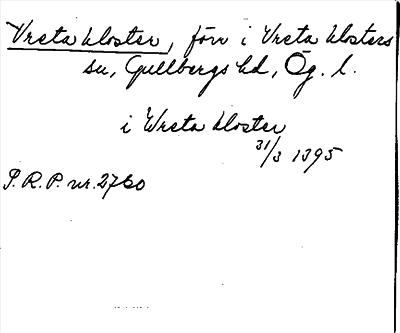 Vreta kloster, förr i Vreta klosters
sn, Gullbergs hd, Ög. l.
i Wreta kloster
31/3 1395
P.R.P. nr. 2760